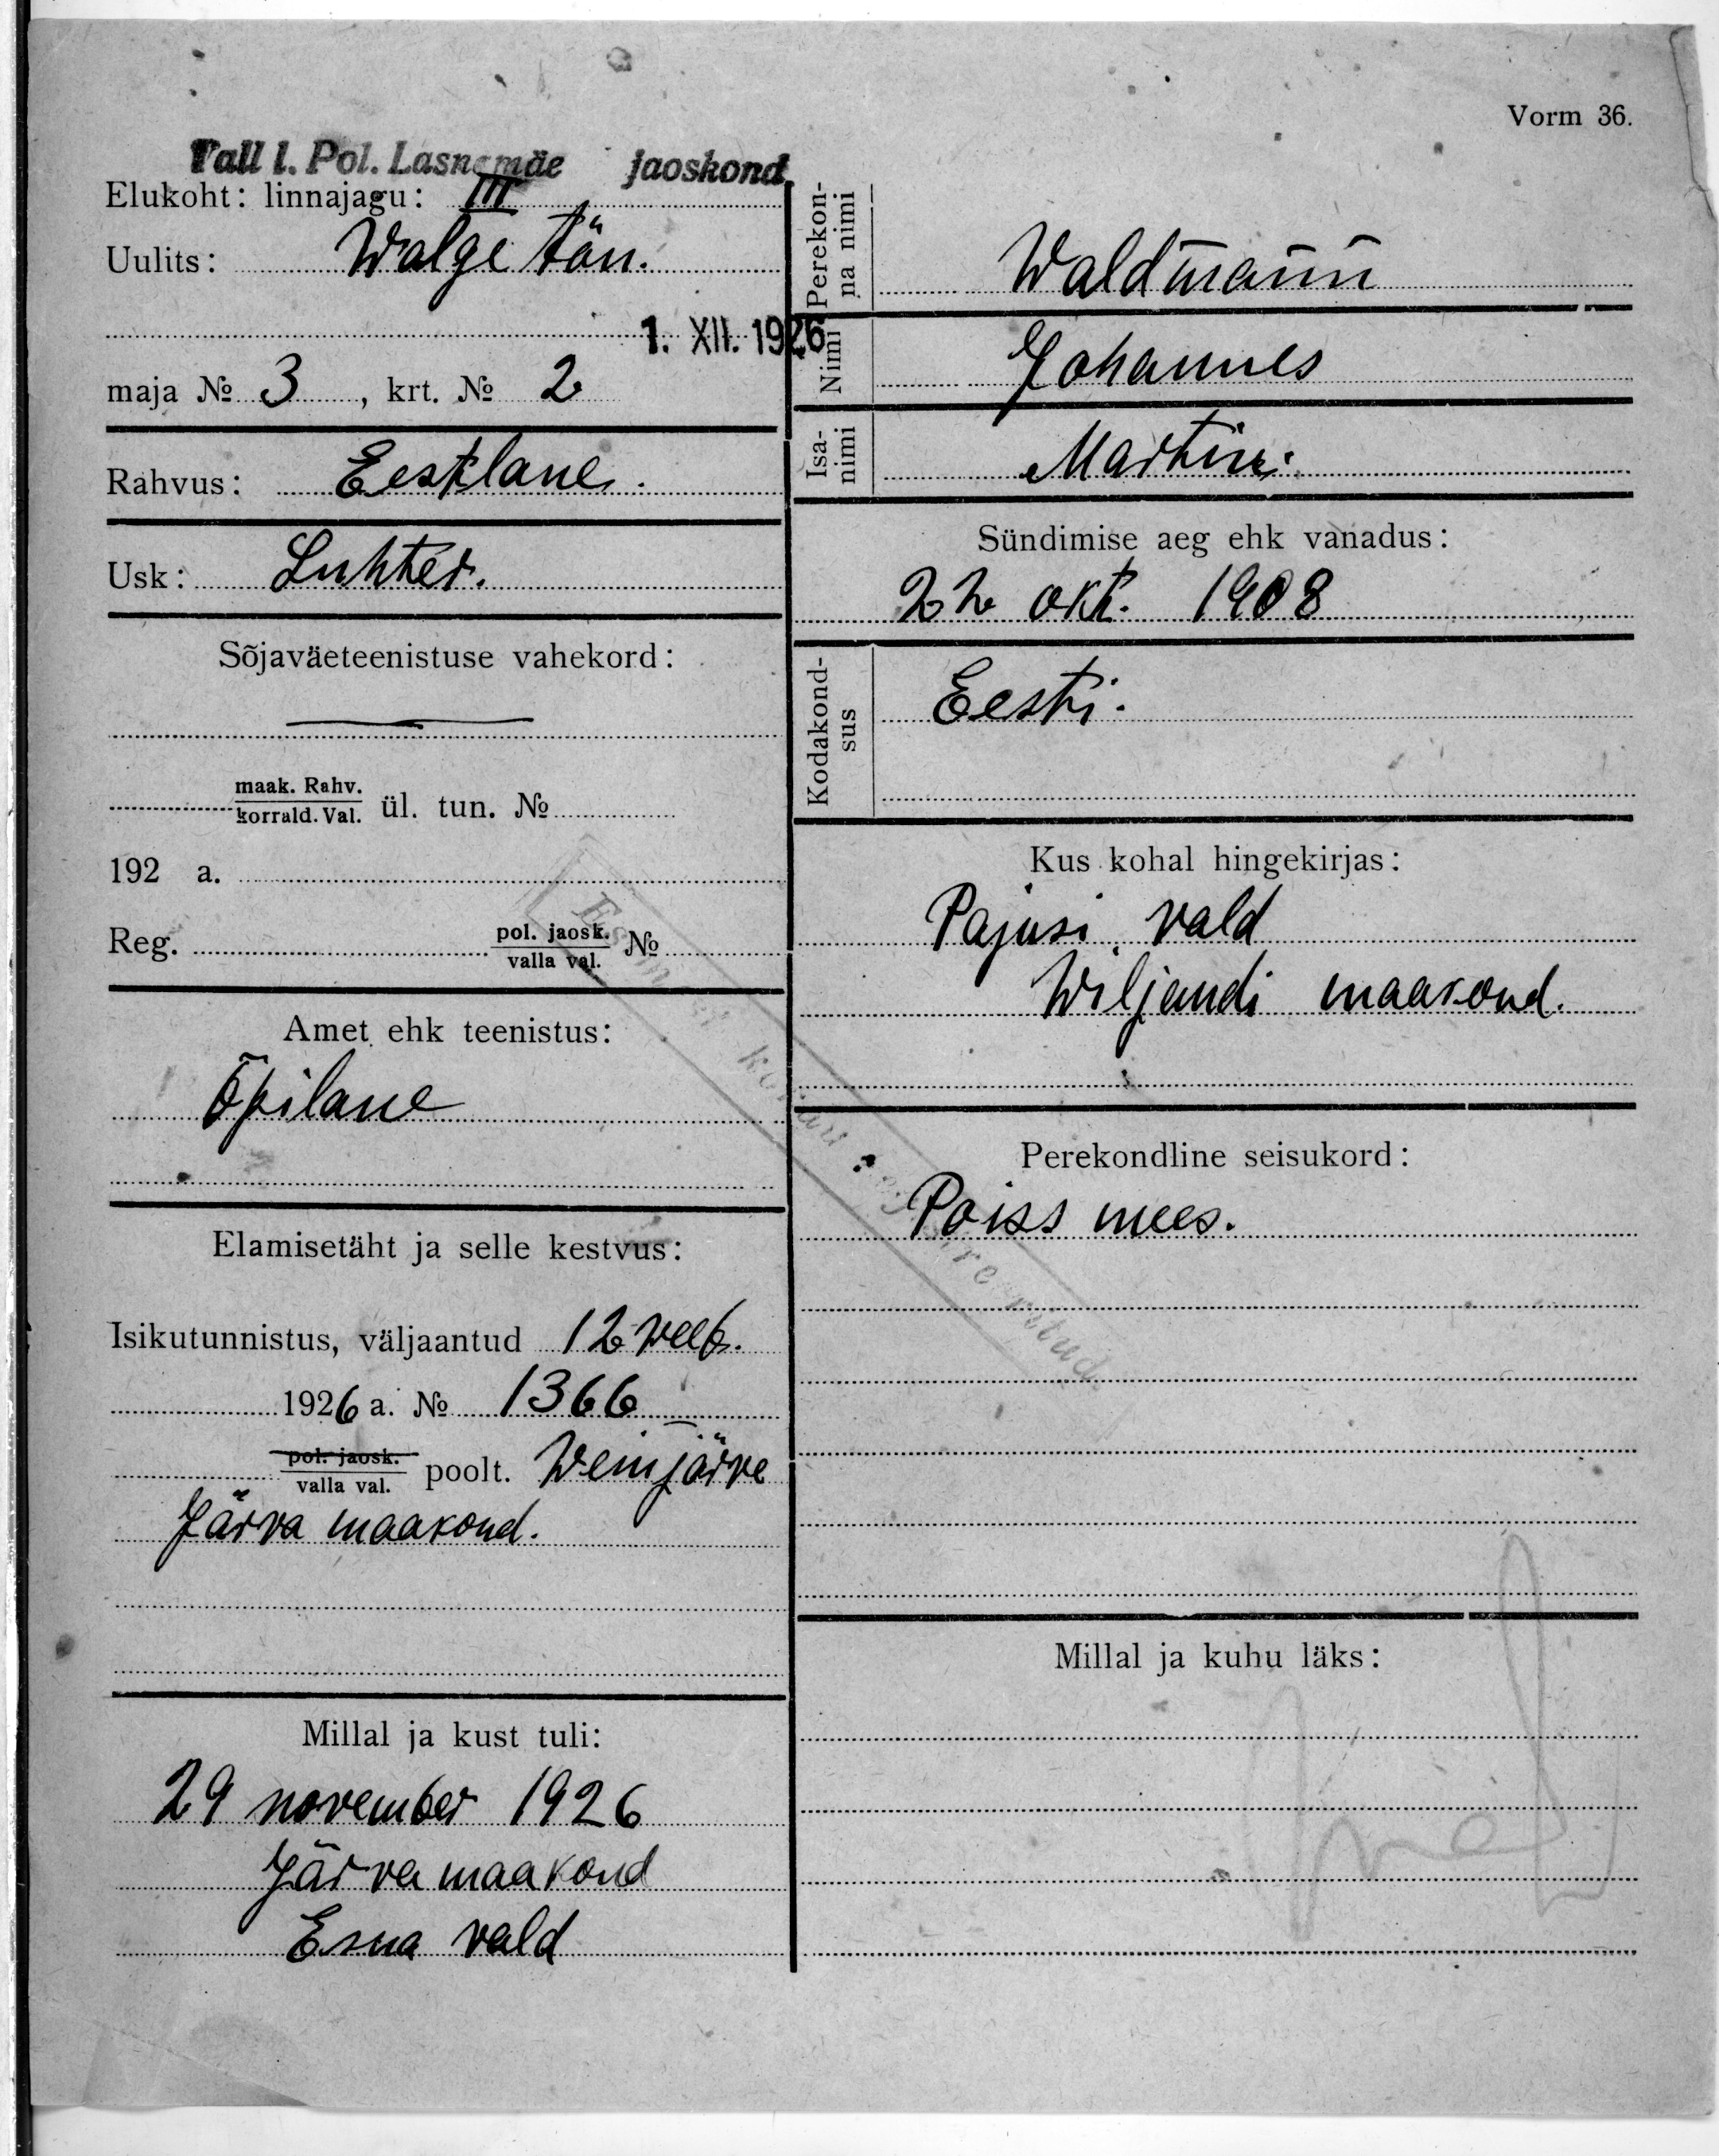 Vorm 36.
Tall l. Pol. Lasnamäe jaoskond
Elukoht: linnajagu: III
Uulits: Walge tän.
1. XII. 1926
maja № 3, krt. № 2
Rahvus: Eestlane.
Usk: Luhter.
Sõjaväeteenistuse vahekord:
maak. Rahv.
korrald. Val. ül. tun. №
192 a.
Reg. pol. jaosk. №
valla val.
Amet ehk teenistus:
Õpilane
Elamisetäht ja selle kestvus:
Isikutunnistus, väljaantud 12 veeb.
1926 a. № 1366
pol. jaosk.
valla val. poolt. Weinjärve
Järva maakond.
Millal ja kust tuli:
29 november 1926
Järva maakond
Esna vald
Perekon-
na nimi Waldmann
Nimi Johannes
Isa-
nimi Martin.
Sündimise aeg ehk vanadus:
22 okt. 1908
Kodakond-
sus Eesti.
Kus kohal hingekirjas:
Pajusi vald
Wiljandi maakond.
Perekondline seisukord:
Poiss mees.
Millal ja kuhu läks: